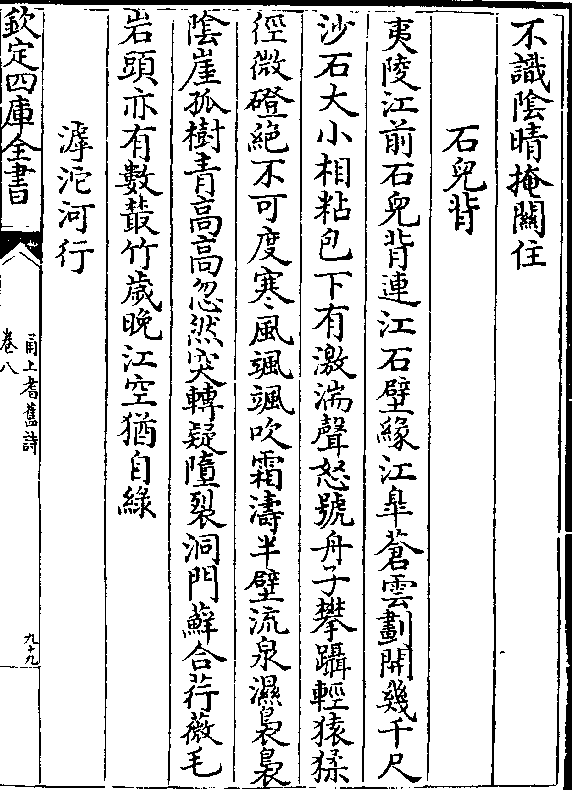 不識陰晴掩關住
石兕背
夷陵江前石兕背連江石壁緣江皐蒼雲劃開幾千尺
沙石大小相粘包下有激湍聲怒號舟子攀躡輕猿猱
徑微磴絶不可度寒風颯颯吹霜濤半壁流泉濕裊裊
陰崖孤樹青高高忽然突轉疑墮裂洞門蘚合荇薇毛
岩頭亦有數叢竹歲晩江空猶自綠
滹沱河行
欽定四庫全書
甬上耆舊詩
卷八
九十九